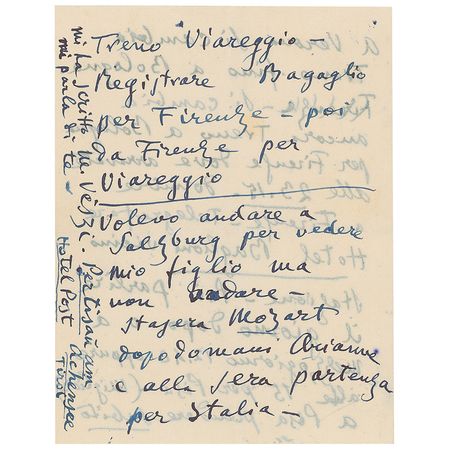 Treno Viareggio –
Registrare Bagaglio
per Firenze – poi
da Firenze per
Viareggio
Volevo andare a
Salzburg per vedere
mio figlio ma
non andare –
stasera Mozart
dopodomani Arianna
e alla sera partenza
per Italia –
mi ha scritto M. Vészi. Pertisau am
mi parla di te – Hotel Post Achensee
Tirol